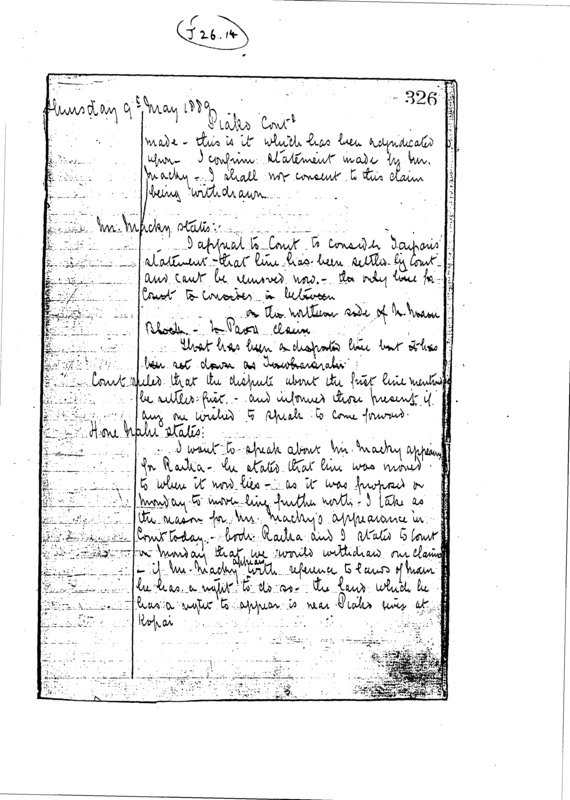 J 26.14
326
Thursday 9th May 1889
Piako Contd
made - this is it which has been adjudicated
upon - I confirm statement made by Mr.
Macky - I shall not consent to this claim
being withdrawn
Mr. Macky states:
I appeal to Court to consider
statement - that line has been settled by Court
and cant be removed now. - the only line for
Court to consider is between
on the northern side of
Block - claim
that has been a disputed line but it has
been set down as
Court ruled that the dispute about the first line mentioned
be settled first - and informed those present if
any one wished to speak to come forward.
Hone Nahe states:
I want to speak about Mr. Macky appearing
for Raika - he stated that line was moved
to where it now lies - as it was proposed on
Monday to move line further north - I take as
the reason for Mr. Macky's appearance in
Court today - both Raika and I stated to Court
on Monday that we would withdraw our claims
- if Mr. Macky appears with reference to lands of
he has a right to do so - the land which he
has a right to appear is near Piako river at
Kopai